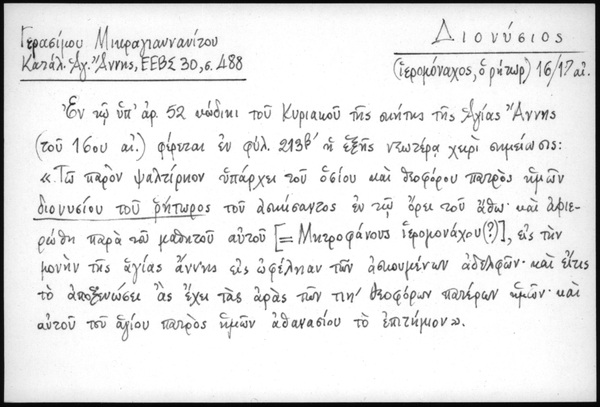 Γερασίμου Μικραγιαννανίτου
Κατάλ. Ἁγ. Ἄννης, ΕΕΒΣ 30, σ. 488
Διονύσιος
(ἱερομόναχος, ὁ ῥήτωρ) 16/17 αἰ.
Ἐν τῷ ὑπ' ἀρ. 52 κώδικι τοῦ Κυριακοῦ τῆς σκήτης τῆς Ἁγίας Ἄννης
(τοῦ 16ου αἰ.) φέρεται ἐν φύλ. 213β' ἡ ἑξῆς νεωτέρᾳ χειρὶ σημείωσις:
« Τῶ παρὸν ψαλτίριον ὑπάρχει τοῦ ὁσίου καὶ θεοφόρου πατρὸς ἡμῶν
διονυσίου τοῦ ῥήτωρος τοῦ ἀσκίσαντος ἐν τῷ ὄρει τοῦ ἄθω· καὶ ἀφιε-
ρώθη παρὰ τοῦ μαθητοῦ αὐτοῦ [= Μητροφάνους ἱερομονάχου (?)], εἰς τὴν
μονὴν τῆς ἁγίας ἄννης εἰς ὠφέληαν τῶν ἀσκουμένων ἀδελφῶν· καὶ εἴτις
τὸ ἀποξενώσει ἂς ἔχει τὰς ἀρὰς τῶν τιη' θεοφόρων πατέρων ἡμῶν· καὶ
αὐτοῦ τοῦ ἁγίου πατρὸς ἡμῶν ἀθανασίου τὸ ἐπιτήμιον».